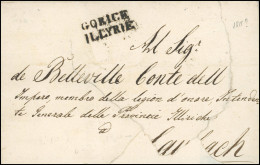 GORICE
ILLYRIE
Al Sig.r
de Belleville Conte dell
Impero, membro della legion d'onore, Intenden
te Generale delle Provincie Illiriche
a
Laybach